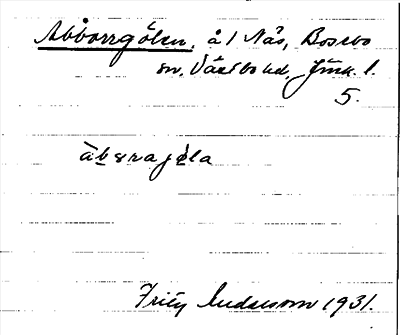 Abborrgölen, å 1 Näs, Bosebo
sn, Västbo hd, Jönk. l.
5.
àbɛragǫla
Fritz Anderson 1931.